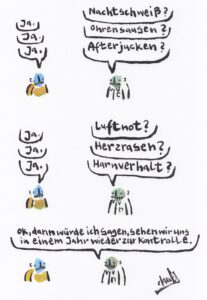 Nachtschweiß?
Ja.
Ohrensausen?
Ja.
Afterjucken?
Ja.
Luftnot?
Ja.
Herzrasen?
Ja.
Harnverhalt?
Ja.
OK, dann würde ich sagen, sehen wir uns
in einem Jahr wieder zur Kontrolle.